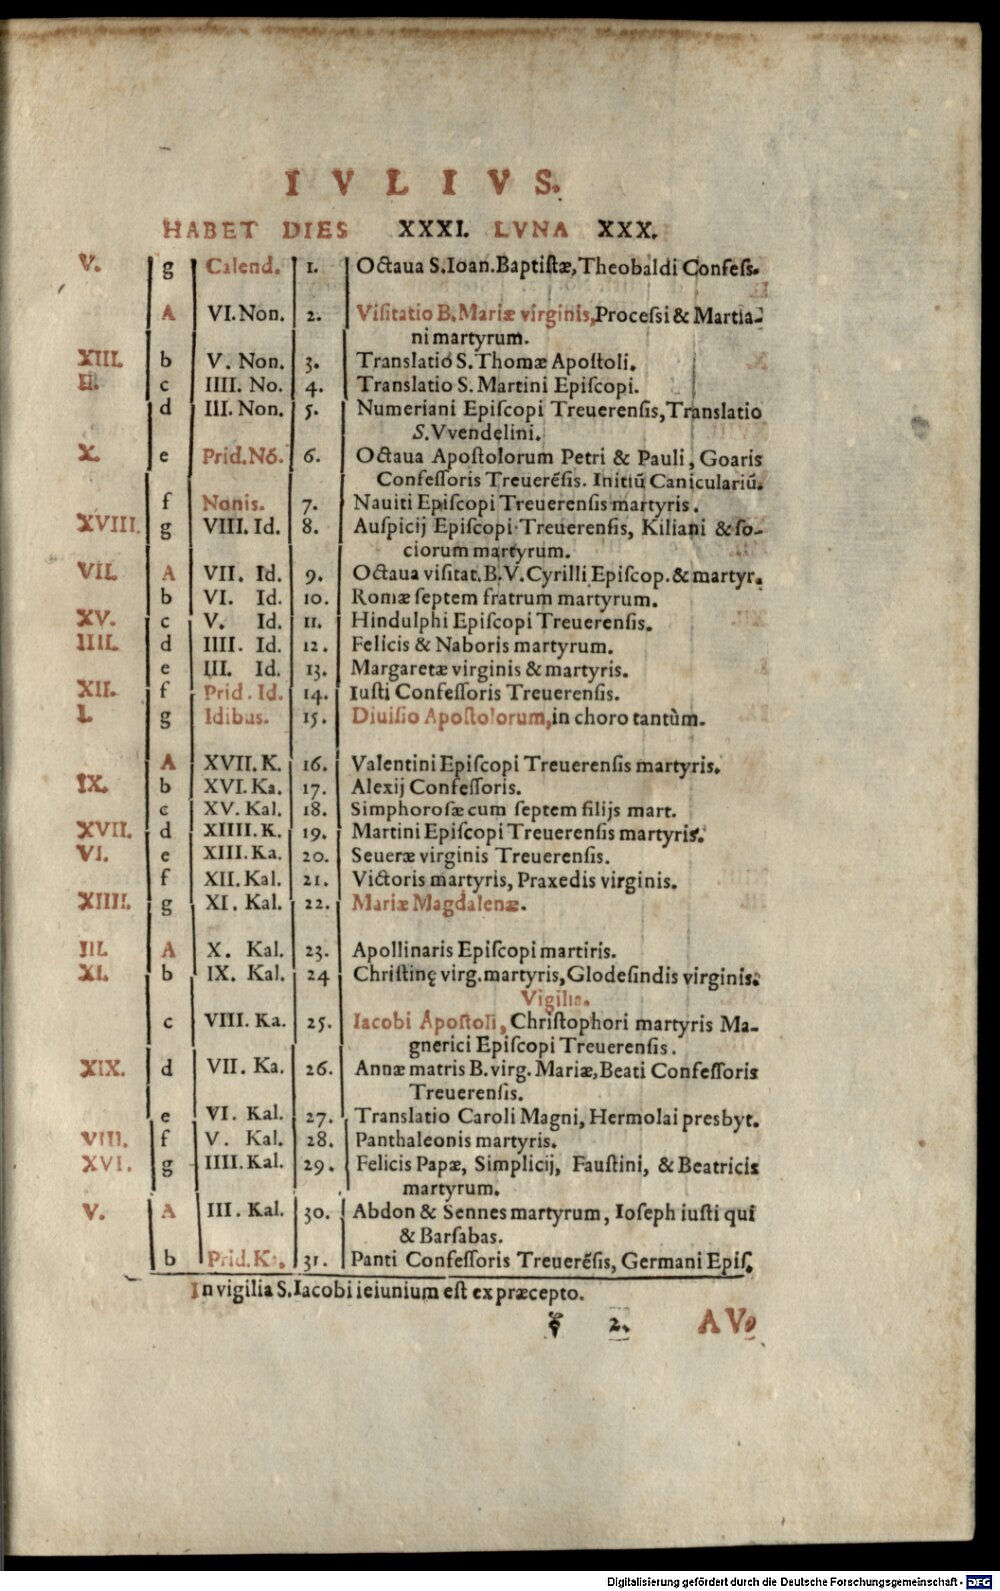 IVLIVS.
HABET DIES XXXI. LVNA XXX.
V. g Calend. 1. Octaua S.Ioan.Baptistæ,Theobaldi Confeſs.
A VI.Non. 2. Viſitatio B.Mariæ virginis,Proceſsi & Martia-
ni martyrum.
XIII. b V. Non. 3. Translatio S.Thomæ Apoſtoli.
II. c IIII. No. 4. Translatio S. Martini Epiſcopi.
d III.Non. 5. Numeriani Epiſcopi Treuerenſis,Translatio
S.Vvendelini.
X. e Prid.Nō. 6. Octaua Apoſtolorum Petri & Pauli, Goaris
Confeſſoris Treuerēſis. Initiū Caniculariū.
f Nonis. 7. Nauiti Epiſcopi Treuerenſis martyris.
XVIII. g VIII. Id. 8. Auſpicij Epiſcopi Treuerenſis, Kiliani & ſo-
ciorum martyrum.
VII. A VII. Id. 9. Octaua viſitat.B.V.Cyrilli Epiſcop.& martyr.
b VI. Id. 10. Romæ ſeptem fratrum martyrum.
XV. c V. Id. 11. Hindulphi Epiſcopi Treuerenſis.
IIII. d IIII. Id. 12. Felicis & Naboris martyrum.
e III. Id. 13. Margaretæ virginis & martyris.
XII. f Prid. Id. 14. Iuſti Confeſſoris Treuerenſis.
I. g Idibus. 15. Diuiſio Apoſtolorum,in choro tantùm.
A XVII. K. 16. Valentini Epiſcopi Treuerenſis martyris.
IX. b XVI. Ka. 17. Alexij Confeſſoris.
c XV. Kal. 18. Simphoroſæ cum ſeptem filijs mart.
XVII. d XIIII. K. 19. Martini Epiſcopi Treuerenſis martyris.
VI. e XIII. Ka. 20. Seueræ virginis Treuerenſis.
f XII. Kal. 21. Victoris martyris, Praxedis virginis.
XIIII. g XI. Kal. 22. Mariæ Magdalenæ.
III. A X. Kal. 23. Apollinaris Epiſcopi martiris.
XI. b IX. Kal. 24 Chriſtinę virg.martyris,Glodeſindis virginis.
Vigilia.
c VIII. Ka. 25. Iacobi Apoſtoli, Chriſtophori martyris Ma-
gnerici Epiſcopi Treuerenſis.
XIX. d VII. Ka. 26. Annæ matris B.virg. Mariæ,Beati Confeſſoris
Treuerenſis.
e VI. Kal. 27. Translatio Caroli Magni, Hermolai presbyt.
VIII. f V. Kal. 28. Panthaleonis martyris.
XVI. g IIII. Kal. 29. Felicis Papæ, Simplicij, Fauſtini, & Beatricis
martyrum.
V. A III. Kal. 30. Abdon & Sennes martyrum, Ioſeph iuſti qui
& Barſabas.
b Prid.Ka. 31. Panti Confeſſoris Treuerēſis, Germani Epiſ.
In vigilia S.Iacobi ieiunium eſt ex præcepto.
2. AV-
Digitalisierung gefördert durch die Deutsche Forschungsgemeinschaft - DFG